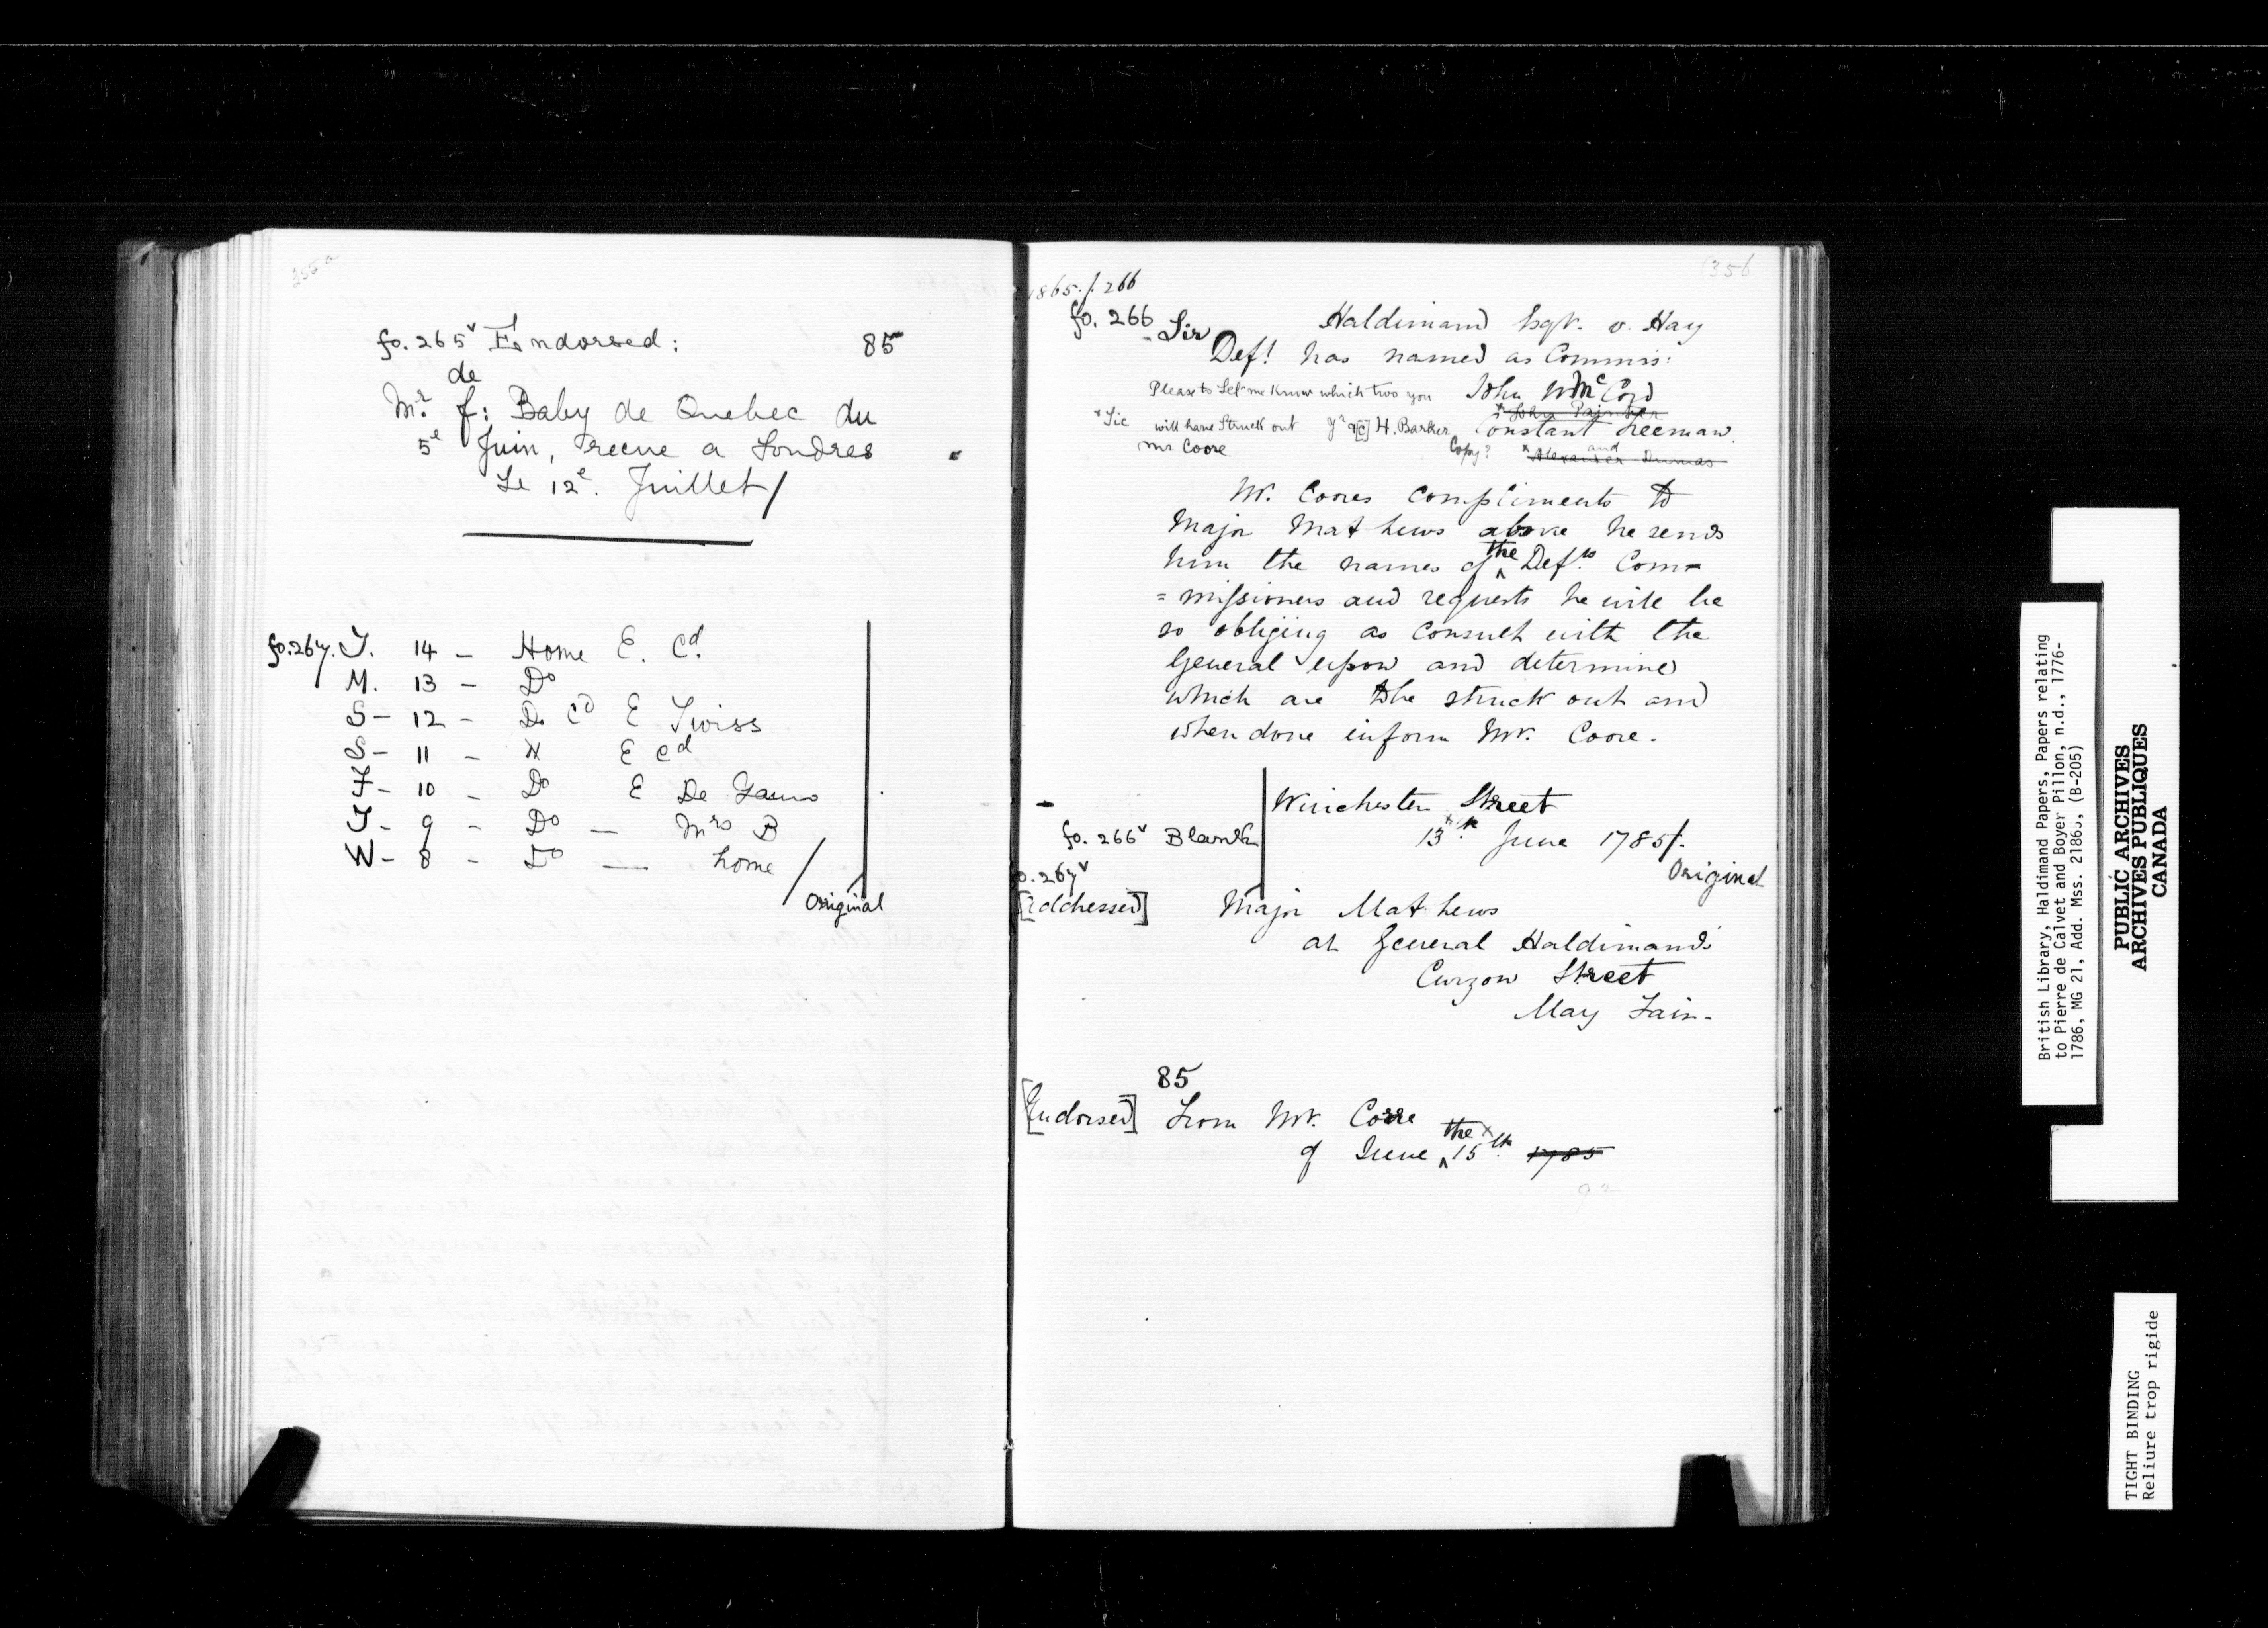 355a
fo. 265v Endorsed: 85
de
Mr. f: Baby de Quebec du
5e Juin, recue a Londres
Le 12e. Juillet/
fo. 267. T. 14 — Home E. Cd.
M. 13 — Do
S — 12 — Do Cd E Twiss
S — 11 — H E Cd
F — 10 — Do E De
T — 9 — Do — Mrs B
W — 8 — Do — home
Original
356
1865. f. 266
fo. 266 Sir Haldimand Esqr. v. Hay
Deft has named as Commis:
Please to Let me Know which two you John Wm McCord
x John Painter
x Sic will have Struck out yr &[c] H. Barker Constant Freeman.
Mr Coore Copy? x Alexander Dumas and
Mr. Coores compliments to
Major Mathews above he sends
him the names of the Defts. Com=
=missioners and requests he will be
so obliging as consult with the
General upon and determine
which are to be struck out and
when done inform Mr. Coore.
Winchester Street
fo. 266v Blank 13th x June 1785/.
Original
fo. 267v
[addressed] Major Mathews
at General Haldimand's
Curzon Street
May Fair.
85
[Endorsed] From Mr. Corre
of June the 15th x 1785
92
British Library, Haldimand Papers, Papers relating
to Pierre de Calvet and Boyer Pillon, n.d., 1776-
1786, MG 21, Add. Mss. 21865, (B-205)
PUBLIC ARCHIVES
ARCHIVES PUBLIQUES
CANADA
TIGHT BINDING
Reliure trop rigide